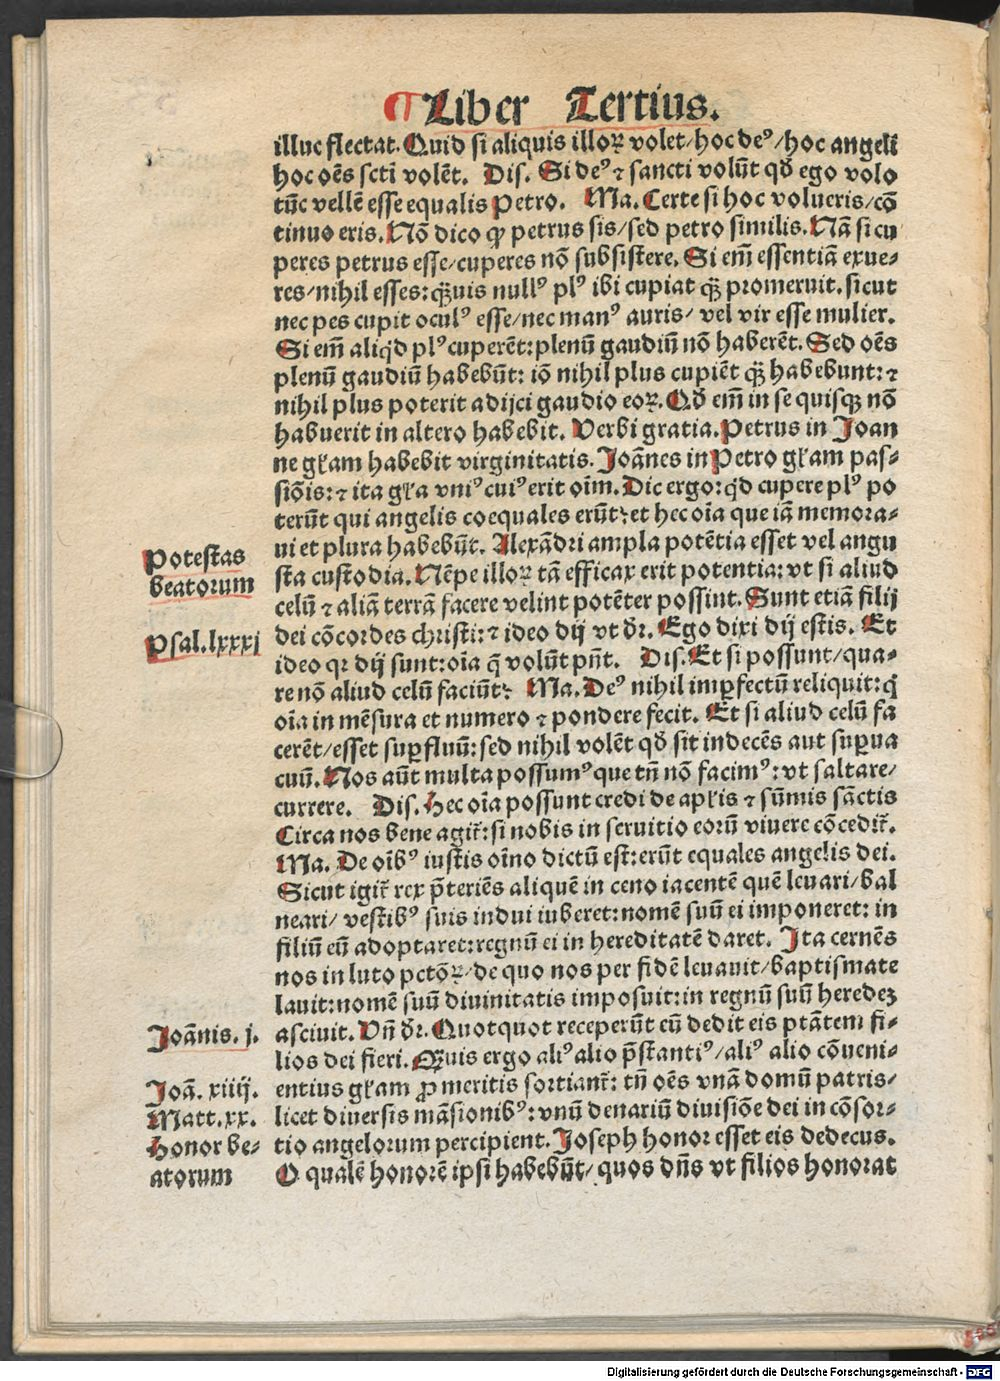 ¶ Liber Tertius.
illuc flectat. Quid si aliquis illoꝝ volet/hoc deꝰ/hoc angeli
hoc oēs scti volēt. Dis. Si deꝰ ⁊ sancti volūt qď ego volo
tūc vellē esse equalis Petro. Ma. Certe si hoc volueris/cō
tinuo eris. Nō dico ꝙ petrus sis/sed petro similis. Nā si cu
peres petrus esse/cuperes nō subsistere. Si em̄ essentiā exue-
res/nihil esses: q̈uis nullꝰ plꝰ ibi cupiat q̈ꝫ promeruit. sicut
nec pes cupit oculꝰ esse/nec manꝰ auris/ vel vir esse mulier.
Si em̄ aliqd plꝰ cuperēt: plenū gaudiū nō haberēt. Sed oēs
plenū gaudiū habebūt: iō nihil plus cupiēt q̈ꝫ habebunt: ⁊
nihil plus poterit adijci gaudio eoꝝ. Qď em̄ in se quisqꝫ nō
habuerit in altero habebit. Verbi gratia. Petrus in Joan
ne gɫam habebit virginitatis. Joānes in Petro gɫam pas-
siōis: ⁊ ita gɫa vniꝰ cuiꝰ erit oīm. Dic ergo: qd cupere plꝰ po
terūt qui angelis coequales erūt: et hec oīa que iā memora-
ui et plura habebūt. Alexādri ampla potētia esset vel angu
sta custodia. Nēpe illoꝝ tā efficax erit potentia: vt si aliud
celū ⁊ aliā terrā facere velint potēter possint. Sunt etiā filij
dei cōcordes christi: ⁊ ideo dij vt dr̄. Ego dixi dij estis. Et
ideo qꝛ dij sunt: oīa q̄ volūt pn̄t. Dis. Et si possunt/qua-
re nō aliud celū faciūt: Ma. Deꝰ nihil imꝑfectū reliquit: q̇
oīa in mēsura et numero ⁊ pondere fecit. Et si aliud celū fa
cerēt/esset suꝑfluū: sed nihil volēt qď sit indecēs aut suꝑua
cuū. Nos aūt multa possumꝰ que tn̄ nō facimꝰ: vt saltare/
currere. Dis. Hec oīa possunt credi de apɫis ⁊ sūmis sāctis
Circa nos bene agit̄: si nobis in seruitio eorū viuere cōcedit̄.
Ma. De oībꝰ iustis oīno dictū est: erūt equales angelis dei.
Sicut igit̄ rex p̄teriēs aliquē in ceno iacentē quē leuari/bal
neari/ vestibꝰ suis indui iuberet: nomē suū ei imponeret: in
filiū eū adoptaret: regnū ei in hereditatē daret. Ita cernēs
nos in luto pctōꝝ/de quo nos per fidē leuauit/baptismate
lauit: nomē suū diuinitatis imposuit: in regnū suū heredeꝫ
asciuit. Vn̄ dr̄. Quotquot receperūt eū dedit eis ptātem fi-
lios dei fieri. Q̈uis ergo aliꝰ alio p̄stantiꝰ/aliꝰ alio cōueni-
entius gɫam ꝓ meritis sortiant̄: tn̄ oēs vnā domū patris/
licet diuersis māsionibꝰ: vnū denariū diuisiōe dei in cōsor-
tio angelorum percipient. Joseph honor esset eis dedecus.
O qualē honorē ipsi habebūt/ quos dn̄s vt filios honorat
Potestas
beatorum
Psal. lxxxj
Joānis. j.
Joā. xiiij.
Matt. xx.
Honor be-
atorum
Digitalisierung gefördert durch die Deutsche Forschungsgemeinschaft - DFG